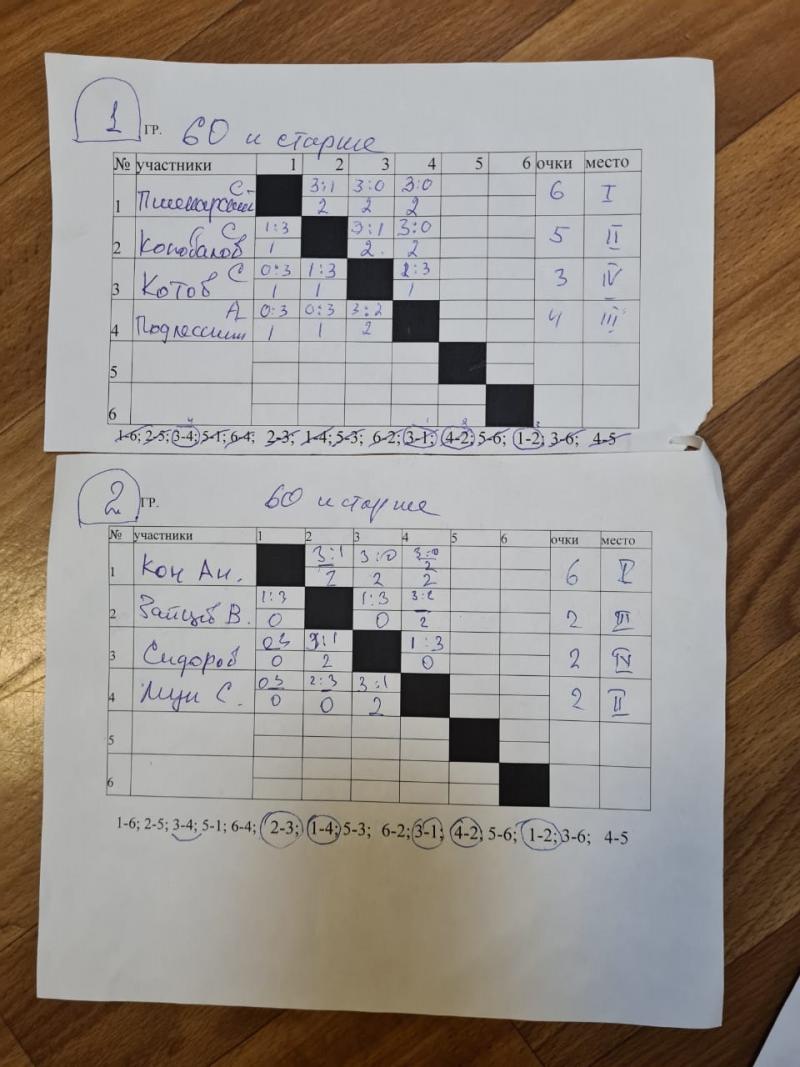 1 ГР. 60 и старше
№ участники 1 2 3 4 5 6 очки место
С. 3:1 3:0 3:0 6 I
1 2 2 2
С 1:3 3:1 3:0 5 II
2 Конобалов 1 2 2
С 0:3 1:3 2:3 3 IV
3 Котов 1 1 1
А 0:3 0:3 3:2 4 III
4 1 1 2
5
6
1-6; 2-5; 3-4; 5-1; 6-4; 2-3; 1-4; 5-3; 6-2; 3-1; 4-2; 5-6; 1-2; 3-6; 4-5
2 ГР. 60 и старше
№ участники 1 2 3 4 5 6 очки место
Кон Ан. 3:1 3:0 3:0 6 I
1 2 2 2
Зайцев В. 1:3 1:3 3:2 2 III
2 0 0 2
Сидоров 0:3 3:1 1:3 2 IV
3 0 2 0
С. 0:3 2:3 3:1 2 II
4 0 0 2
5
6
1-6; 2-5; 3-4; 5-1; 6-4; 2-3; 1-4; 5-3; 6-2; 3-1; 4-2; 5-6; 1-2; 3-6; 4-5